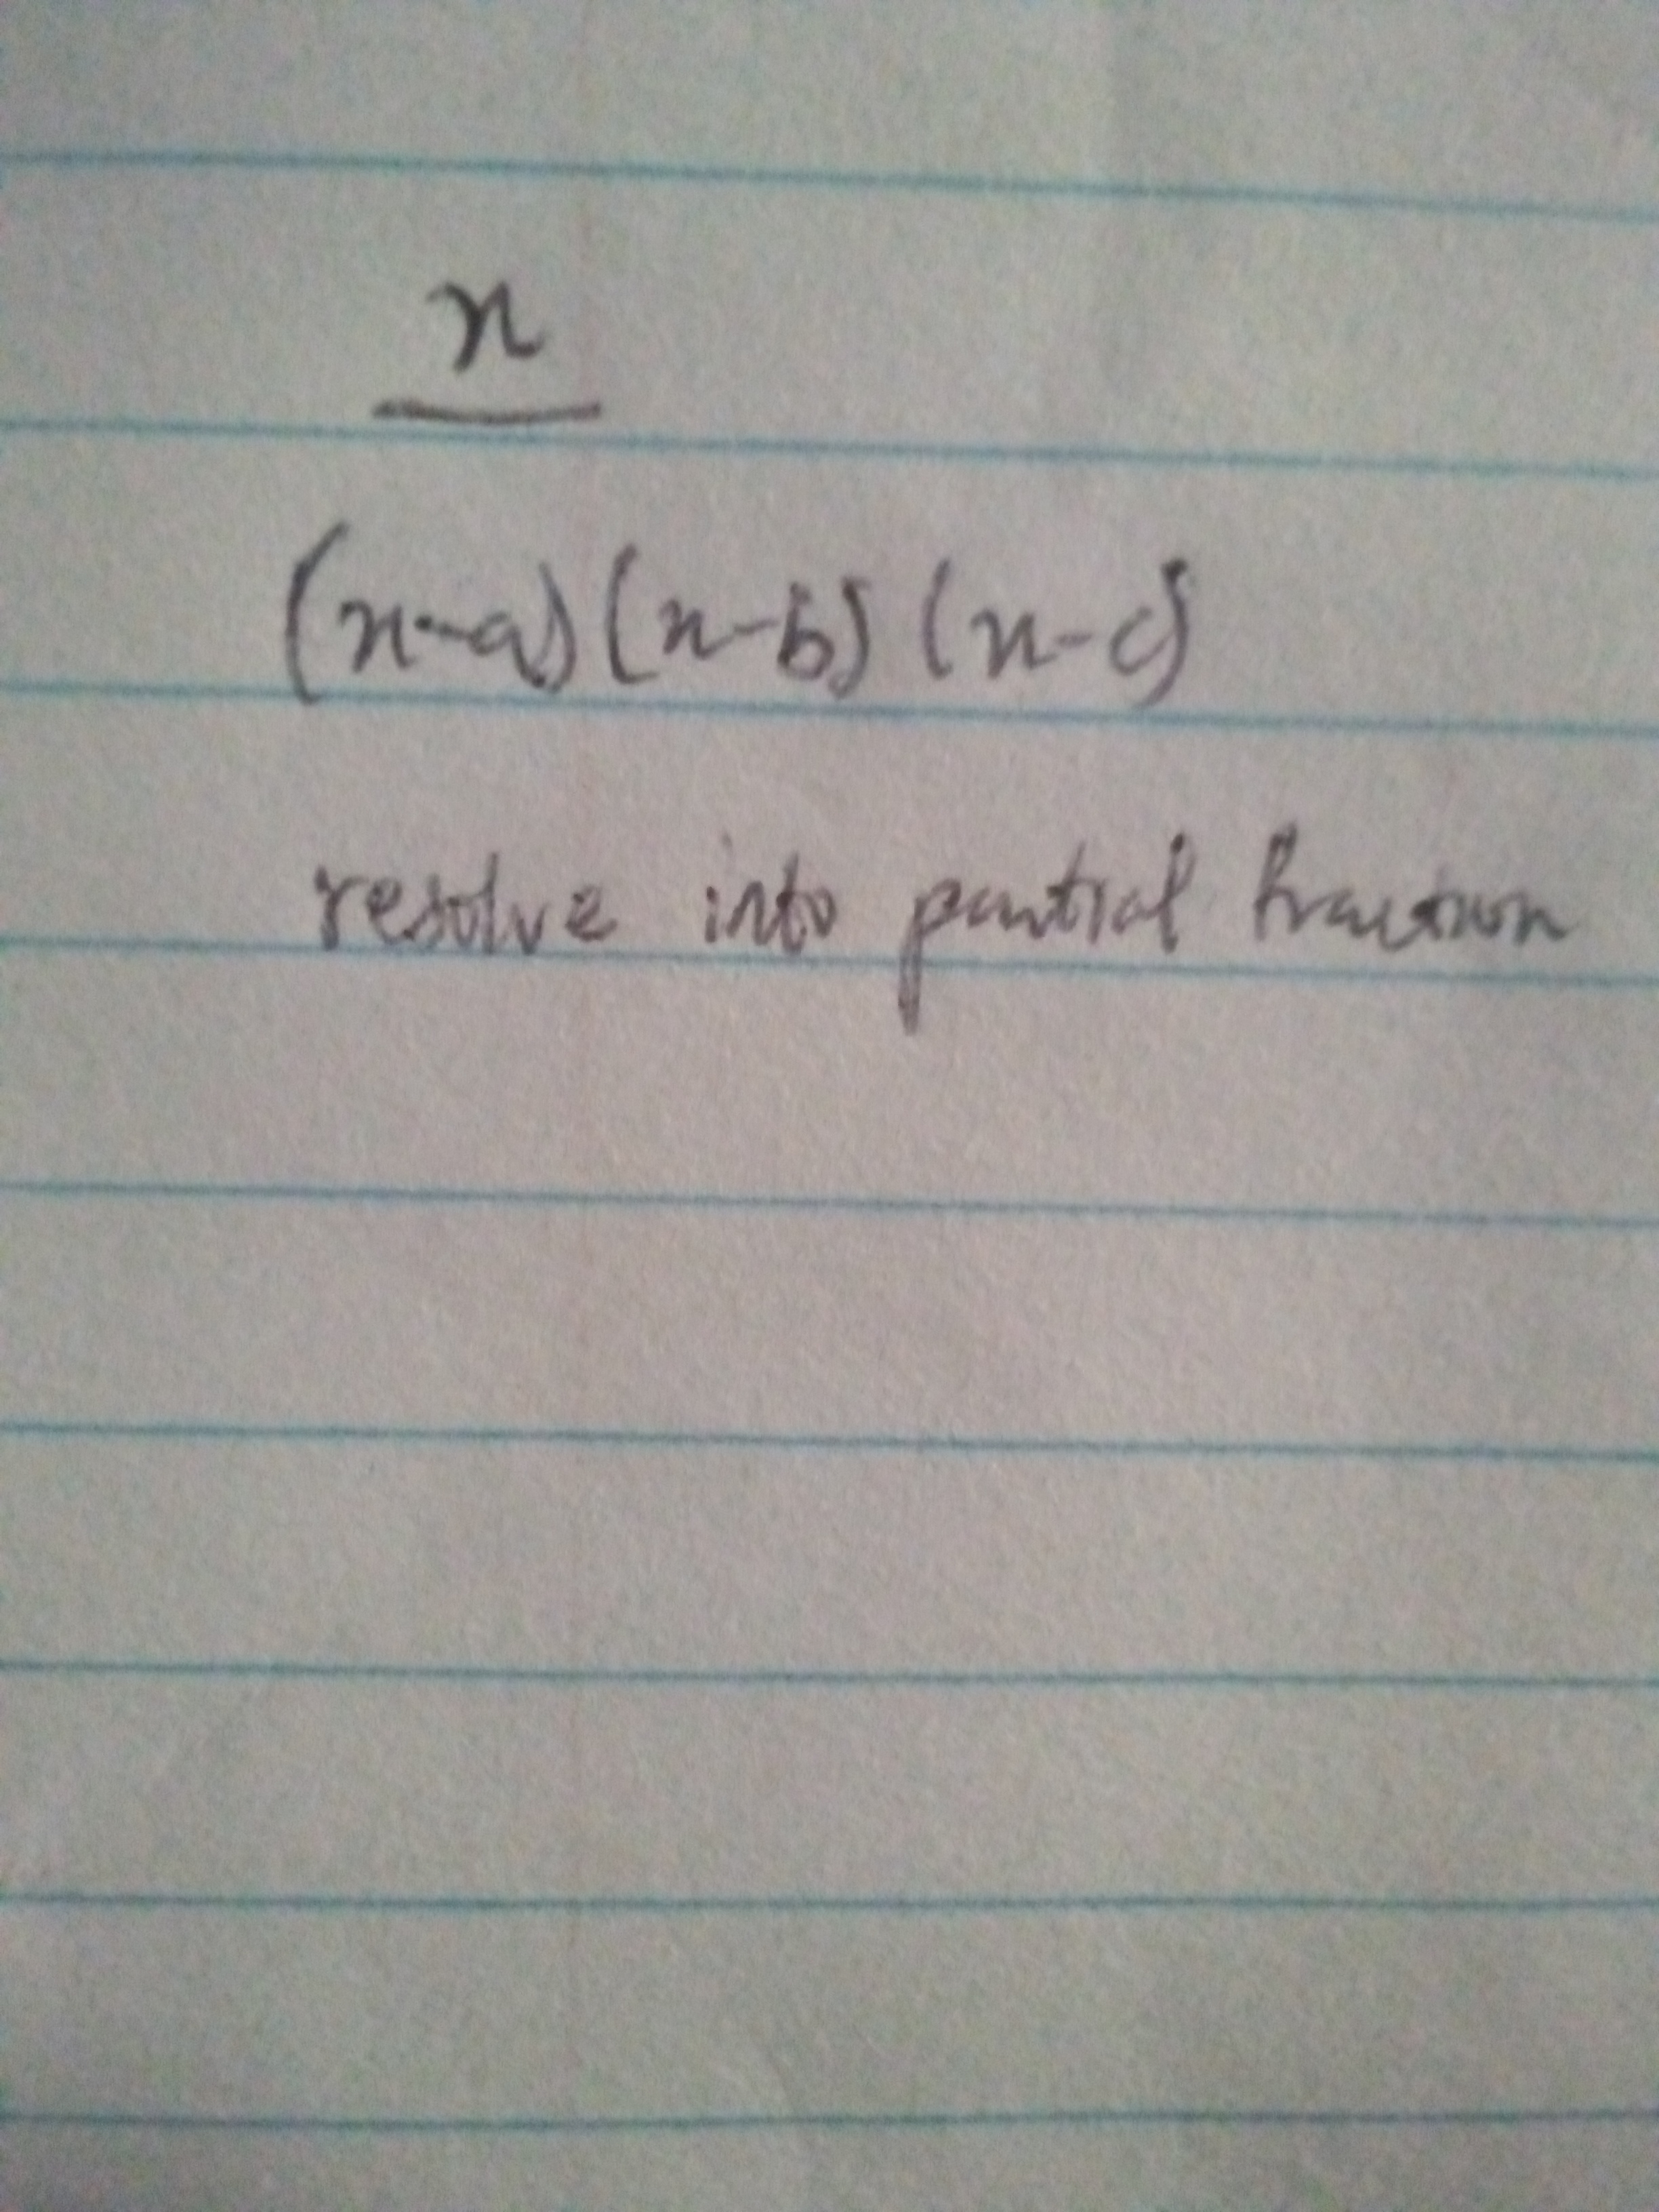 x
(x-a)(x-b)(x-c)
resolve into partial fraction